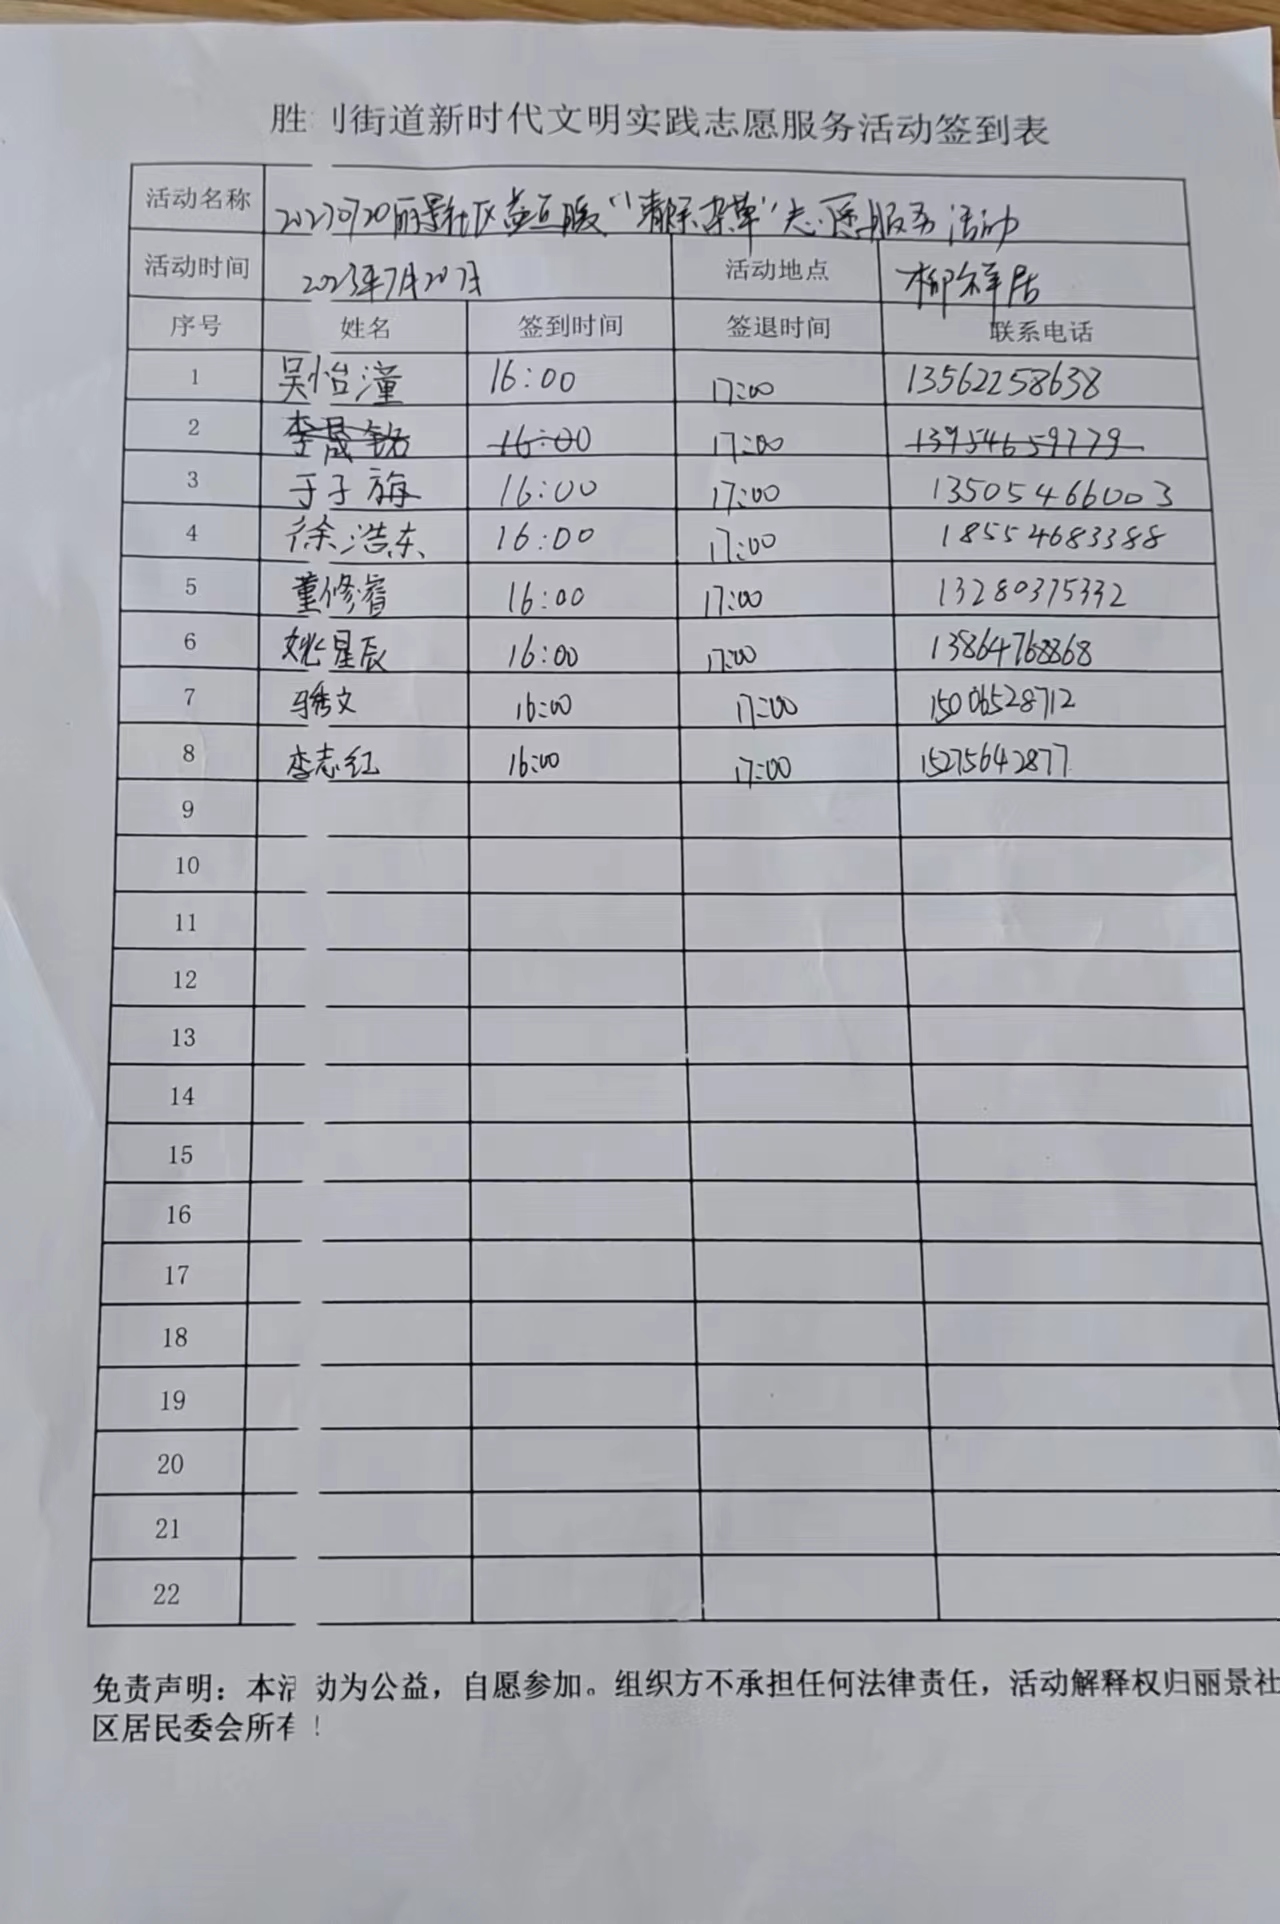 胜利街道新时代文明实践志愿服务活动签到表
活动名称 20230720丽景社区益互暖“清除杂草”志愿服务活动
活动时间 2023年7月20日 活动地点 柳祥居
序号 姓名 签到时间 签退时间 联系电话
1 吴怡潼 16:00 17:00 13562258638
2 李晟铭 16:00 17:00 13954659779
3 于子旃 16:00 17:00 13505466003
4 徐浩东 16:00 17:00 18554683388
5 董修睿 16:00 17:00 13280375332
6 姚星辰 16:00 17:00 13864768868
7 马秀文 16:00 17:00 15006528712
8 李志红 16:00 17:00 15275642877
9
10
11
12
13
14
15
16
17
18
19
20
21
22
免责声明：本活动为公益，自愿参加。组织方不承担任何法律责任，活动解释权归丽景社
区居民委会所有！